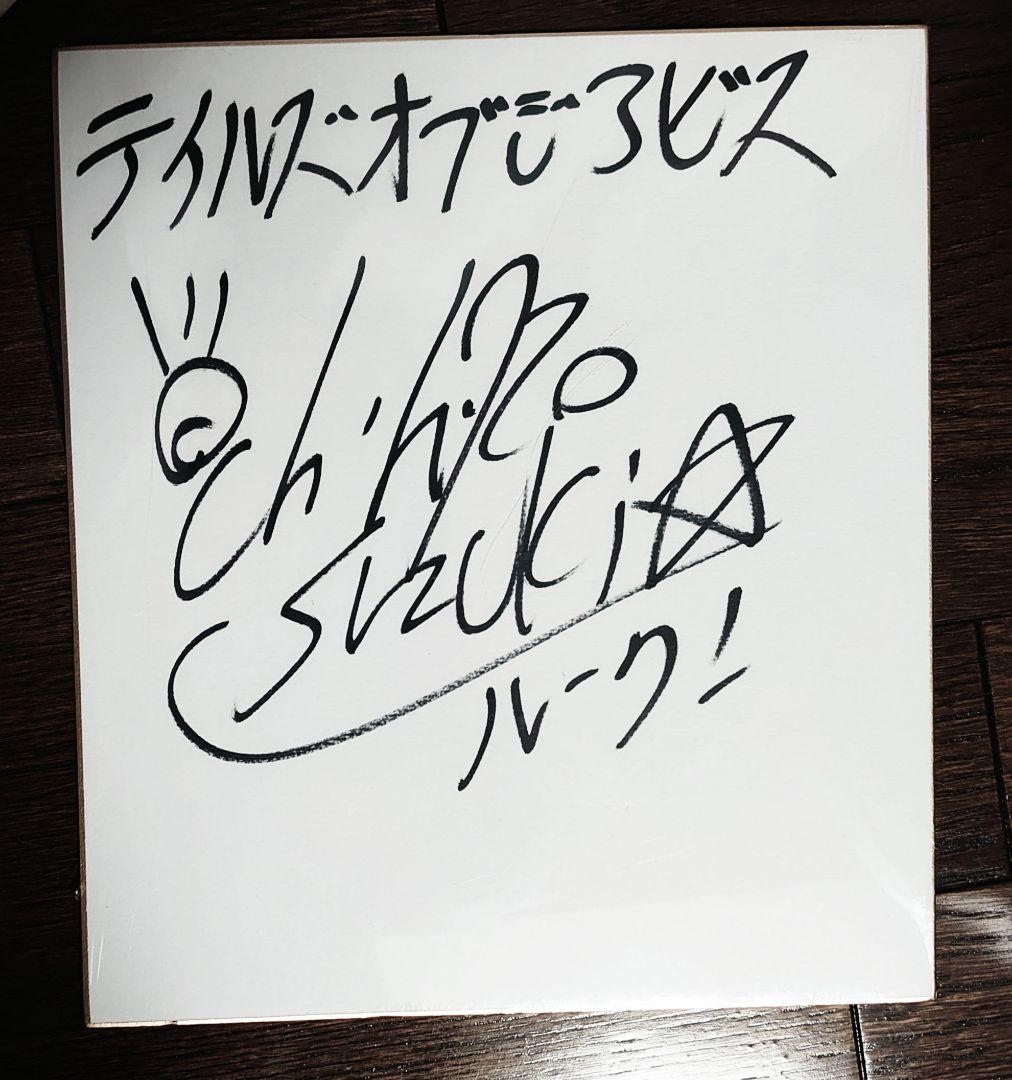 テイルズオブジアビス
Chihiro
Suzuki☆
ルーク!